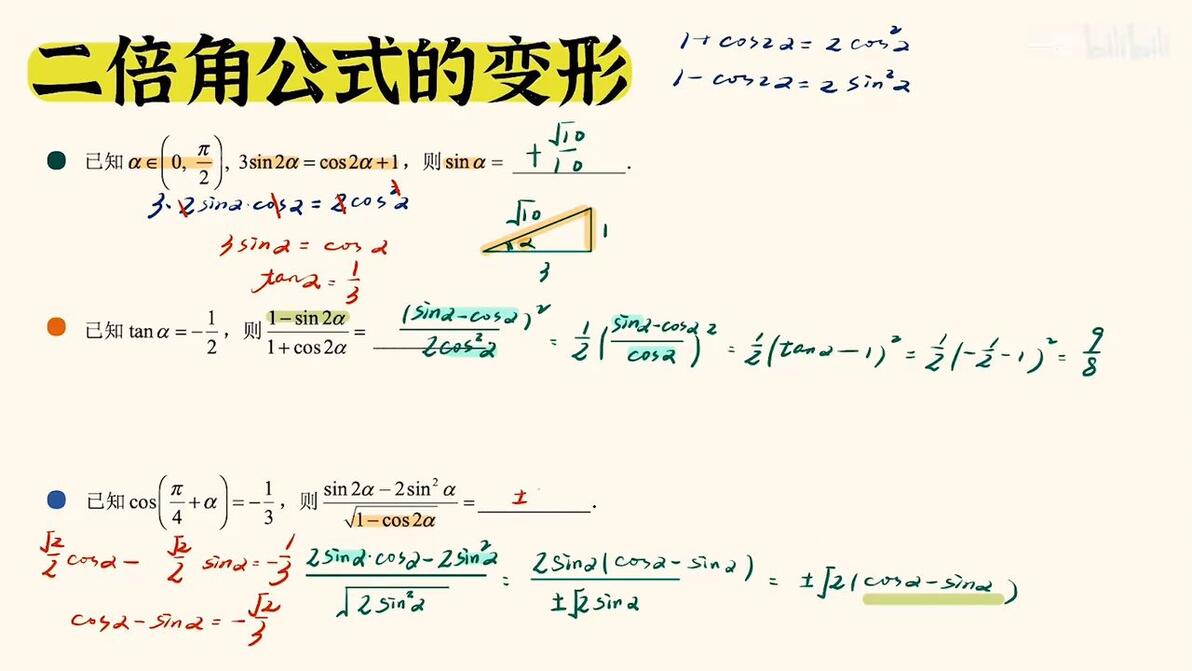 二倍角公式的变形
1+cos2α=2cos²α
1-cos2α=2sin²α
bilibili
已知 α∈(0, π/2), 3sin2α=cos2α+1, 则 sinα= +√10/10 .
3·2sinα·cosα=2cos²α
3sinα=cosα
tanα=1/3
√10
α
1
3
已知 tanα=-1/2, 则 (1-sin2α)/(1+cos2α)= (sinα-cosα)²/2cos²α = 1/2((sinα-cosα)/cosα)² = 1/2(tanα-1)² = 1/2(-1/2-1)² = 9/8
已知 cos(π/4+α)=-1/3, 则 (sin2α-2sin²α)/√(1-cos2α)= ± .
√2/2 cosα-√2/2 sinα=-1/3
(2sinα·cosα-2sin²α)/√(2sin²α) = 2sinα(cosα-sinα)/(±√2sinα) = ±√2(cosα-sinα)
cosα-sinα=-√2/3